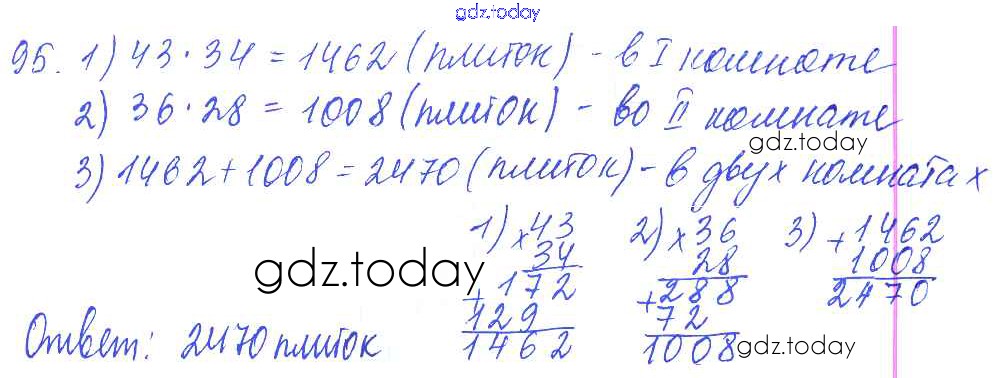 gdz.today
95. 1) 43 · 34 = 1462 (плиток) - в I комнате
2) 36 · 28 = 1008 (плиток) - во II комнате
gdz.today
3) 1462 + 1008 = 2470 (плиток) - в двух комнатах
1) × 43
34
+ 172
129
1462
2) × 36
28
+ 288
72
1008
3) + 1462
1008
2470
gdz.today
Ответ: 2470 плиток
gdz.today